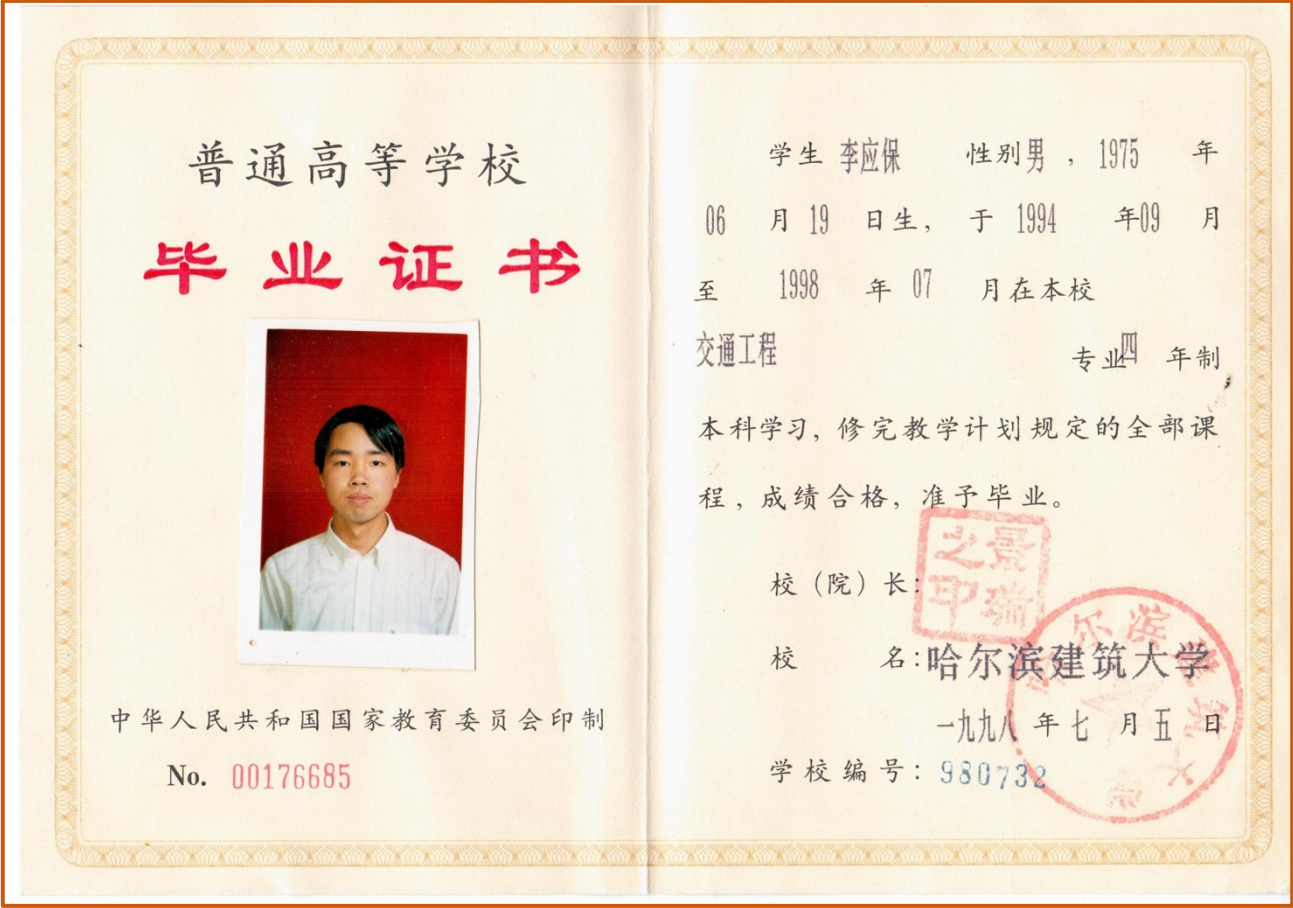 普通高等学校
毕业证书
中华人民共和国国家教育委员会印制
No. 00176685
学生 李应保 性别 男 , 1975 年
06 月 19 日生, 于 1994 年 09 月
至 1998 年 07 月在本校
交通工程 专业 四 年制
本科学习, 修完教学计划规定的全部课
程, 成绩合格, 准予毕业。
校（院）长:
景瑞之印
校 名: 哈尔滨建筑大学
一九九八 年 七 月 五 日
学校编号: 980732
哈尔滨建筑大学